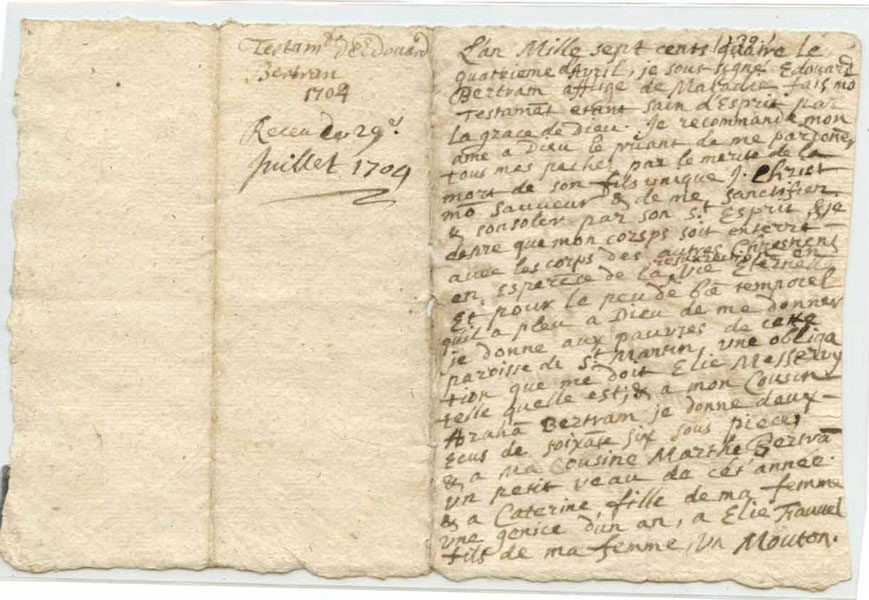 Testamt d'Edouard
Bertran
1704
Receu du 29e
Juillet 1704
L'an Mille sept cents quatre le
quatrieme d'Avril, je sous signé Edouard
Bertram affligé de Maladie fais mō
Testamāt etant sain d'Esprit par
la grace de Dieu. Je recommande mon
ame a Dieu le priant de me pardoner
tous mes pechez par le merite de la
mort de son fils unique J. Christ
mō Sauveur & de me sanctifier
& consoler par son St Esprit, & je
desire que mon corsps soit enterré
avec les corps des autres Chrestiens
en Esperāce de la resurrection en Vie Eternelle
Et pour le peu de biē temporel
qu'il a pleu a Dieu de me donner
je donne aux pauvres de cette
paroisse de St Martin, une obliga
tion que me doit Elie Messervy
telle quelle est; & a mon Cousin
Abrahā Bertram je donne deux
Ecus de soixāte six sous piece,
& a Ma Cousine Marthe Bertrā
un petit veau de cet' année
& a Caterine, fille de ma femme
une genice d'un an, a Elie Fauvel
fils de ma femme, un Mouton.